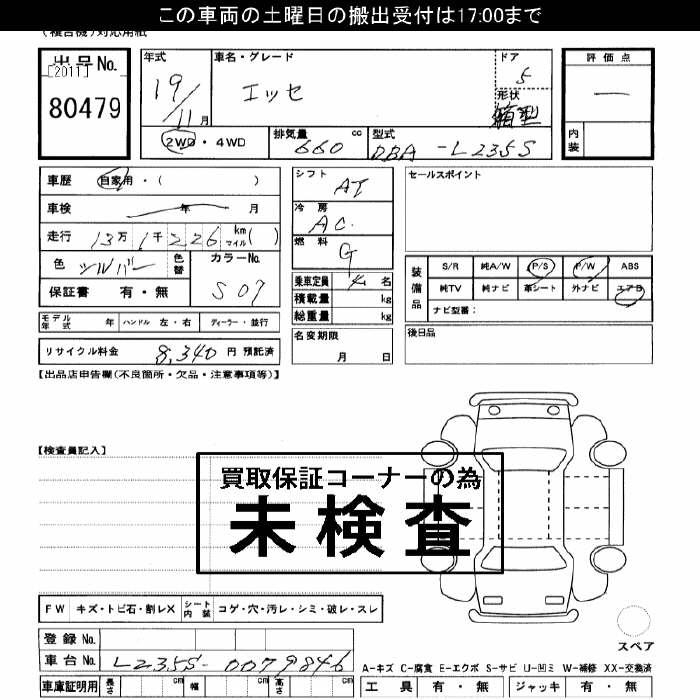 この車両の土曜日の搬出受付は17:00まで
(複合機)対応用紙
出品No.
[2011]
80479
年式
19/11月
車名・グレード
エッセ
ドア
5
形状
箱型
評価点
―
内装
2WD・4WD
排気量 660 cc
型式 DBA-L235S
車歴 自家用・( )
車検 年 月
走行 13万1千226 km マイル( )
色 シルバー 色替
カラーNo. S07
保証書 有・無
シフト AT
冷房 AC.
燃料 G
乗車定員 4名
積載量 kg
総重量 kg
セールスポイント
装備品
S/R 純A/W P/S P/W ABS
純TV 純ナビ 革シート 外ナビ エアB
ナビ型番:
モデル年式 年 ハンドル 左・右 ディーラー・並行
名変期限 月 日
後日品
リサイクル料金 8,340 円 預託済
【出品店申告欄(不良箇所・欠品・注意事項等)】
【検査員記入】
買取保証コーナーの為
未検査
FW キズ・トビ石・割レX シート内装 コゲ・穴・汚レ・シミ・破レ・スレ
スペア
登録No.
車台No. L235S-0079846
A-キズ C-腐食 E-エクボ S-サビ U-凹ミ W-補修 XX-交換済
車庫証明用 長さ cm 幅 cm 高さ cm
工具 有・無 ジャッキ 有・無